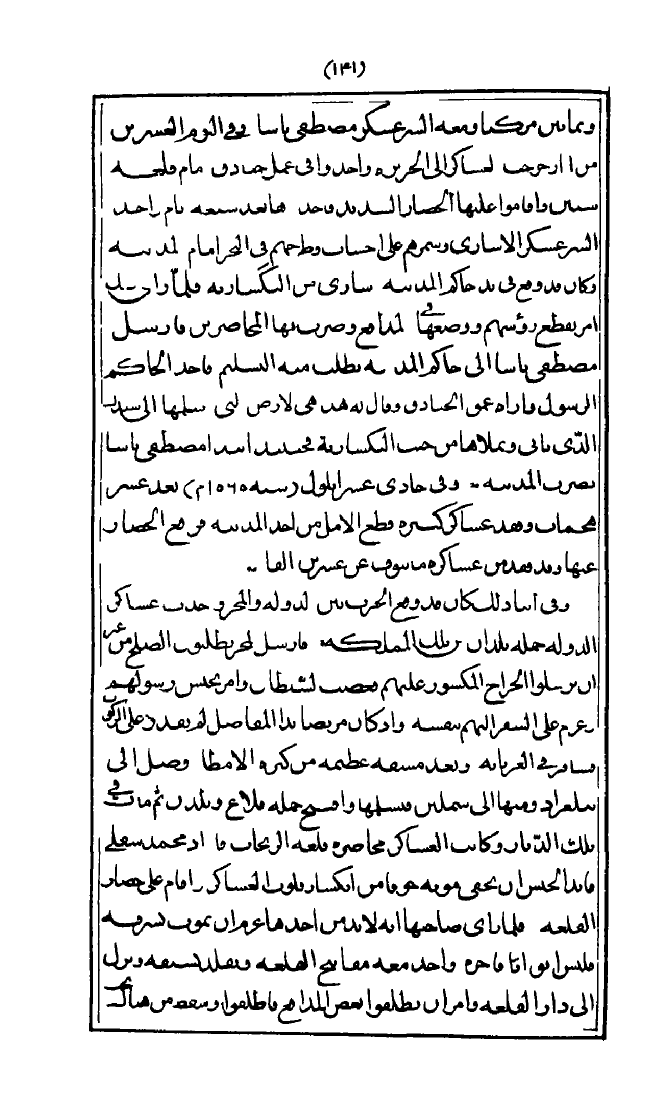 (١٤١)
وثمانين مركبا ومعه السر عسكر مصطفى باشا وفي اليوم العشرين
من ايار خرجت العساكر الى الجزيره واخذوا في عمل خنادق امام قلعة
واقاموا عليها الحصار الشديد فاخذوها بعد سبعة ايام واخذ
السر عسكر الاسارى وسمرهم على اخشاب وطرحهم في البحر امام المدينه
وكان قد وقع في يد حاكم المدينه اسارى من اليكساريه فلما راى ذلك
امر بقطع رؤسهم ووضعها في المدافع وضرب بها المحاصرين فارسل
مصطفى باشا الى حاكم المدينه يطلب منه التسليم فاخذ الحاكم
الرسول فاراه عمق الخنادق وقال له هذه هي الارض التي نسلمها الى سيدك
الذي ياتي ويملاها من جثث اليكساريه فحينئذ ابتدا مصطفى باشا
بضرب المدينه وفي حادي عشر ايلول (سنه ١٥٦٥م) بعد عشر
هجمات وفقد عساكر كثيره قطع الامل من اخذ المدينه فرفع الحصار
عنها وقد فقد من عساكره ما ينوف عن عشرين الفا
وفي اثناء ذلك كان قد وقع الحرب بين الدوله والمجر واخذت عساكر
الدوله جملة بلدان من تلك المملكه فارسل المجر يطلبون الصلح من غير
ان يرسلوا الخراج المكسور عليهم فغضب السلطان وامر بحبس رسولهم
وعزم على السفر اليهم بنفسه واذ كان مريضا بداء المفاصل لم يقدر على الركوب
فسافر في العربانه وبعد مشقه عظيمه من كثرة الامطار وصل الى
بلغراد ومنها الى سملين فتسلمها وافتتح جملة قلاع وبلدن ثم مات في
تلك الديار وكانت العساكر محاصره قلعة فاراد محمد
قائد الجيش ان يخفي موته خوفا من انكسار قلوب العساكر واقام على حصار
القلعه فلما راى صاحبها انه لا بد من اخذها عزم ان يموت بشرفه
فلبس اثوابا فاخره واخذ معه مفاتيح القلعه وتقلد بسيفه ونزل
الى دار القلعه وامر ان يطلقوا بعض المدافع فاطلقوا وسقط من هناك